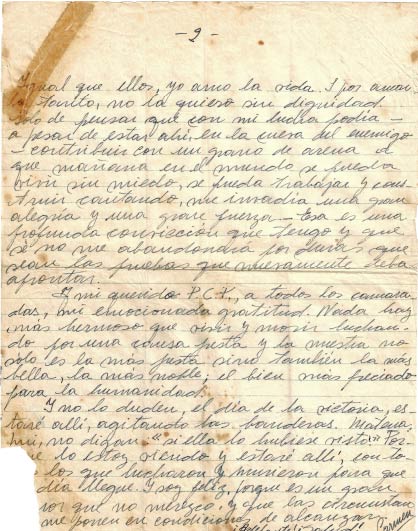 - 2 -
Igual que ellos, yo amo la vida. Y por amar
la tanto, no la quiero sin dignidad.
Solo de pensar que con mi lucha podía -
a pesar de estar ahí, en la cueva del enemigo
- contribuir con un grano de arena a
que mañana en el mundo se pueda
vivir sin miedo, se pueda trabajar y cons-
truir cantando, me invadía una gran
alegría y una gran fuerza - Esa es una
profunda convicción que tengo y que
sé no me abandonará por duras que
sean las pruebas que nuevamente deba
afrontar.
Y mi querido P.C., a todos los camara-
das, mi emocionada gratitud. Nada hay
más hermoso que vivir y morir luchan-
do por una causa justa y la nuestra no
solo es la más justa sino también la más
bella, la más noble; el bien más preciado
para la humanidad.
Y no lo duden, el día de la victoria, es-
taré allí, agitando las banderas.
no digan: "si ella lo hubiese visto" Por-
lo estoy viendo y estaré allí, con to-
los que lucharon y murieron para que
día llegue. Y soy feliz, porque es un gran
nor que no merezco. Y que las circunstan
me ponen en condiciones de alcanzar.